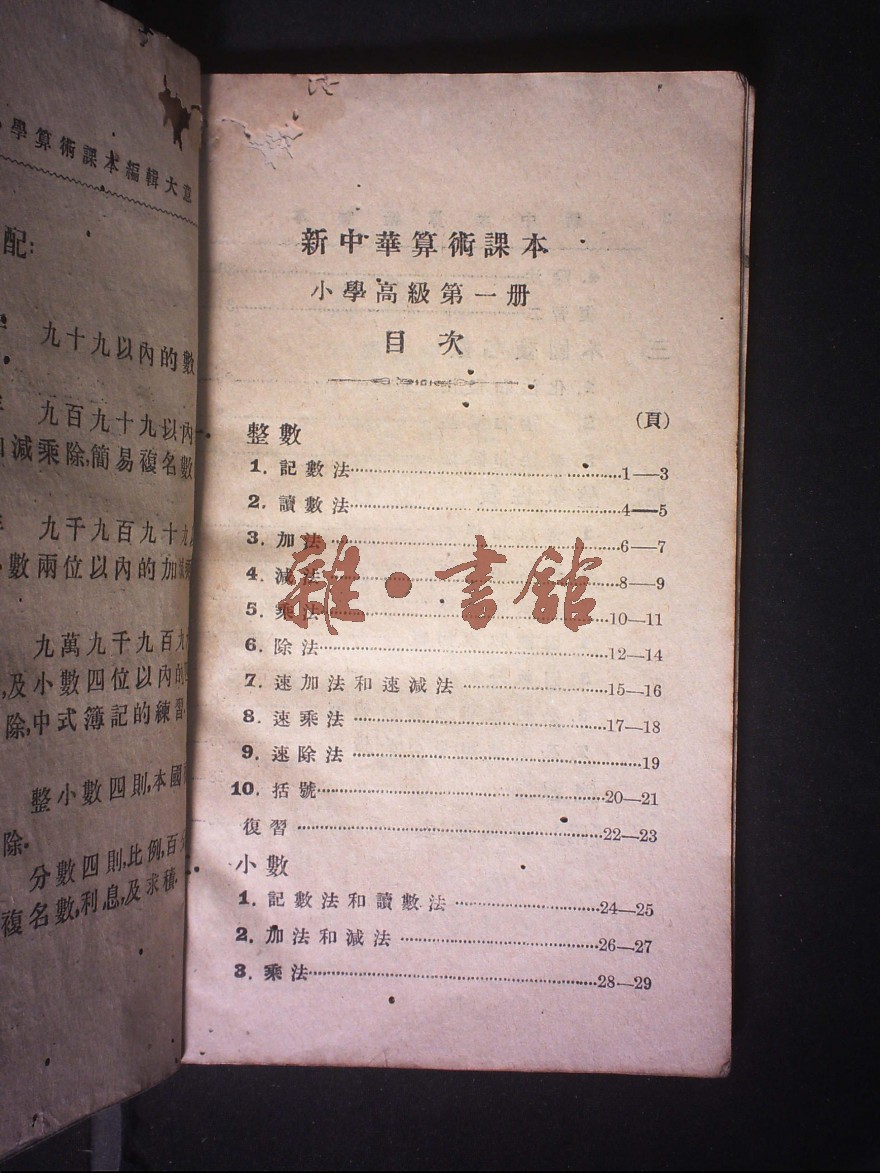 學算術課本編輯大意
配:
九十九以內的數
九百九十九以內
減乘除,簡易複名數
九千九百九十九
數兩位以內的加
九萬九千九百九
,及小數四位以內的
除,中式簿記的練習.
整小數四則,本國
除.
分數四則,比例,百分
複名數,利息,及求積.
新中華算術課本
小學高級第一册
目次
(頁)
整數
1. 記數法……1—3
2. 讀數法……4—5
3. 加法……6—7
4. 減法……8—9
5. 乘法……10—11
6. 除法……12—14
7. 速加法和速減法……15—16
8. 速乘法……17—18
9. 速除法……19
10. 括號……20—21
復習……22—23
小數
1. 記數法和讀數法……24—25
2. 加法和減法……26—27
3. 乘法……28—29
雜·書館